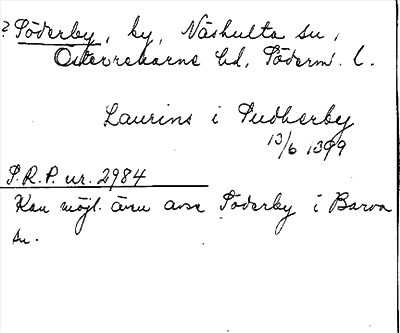 ? Söderby, by, Näshulta sn,
Österrekarne hd, Söderm. l.
Laurins i Sudherby
13/6 1399
S.R.P. nr. 2984
Kan möjl. även avse Söderby i Barva
sn.